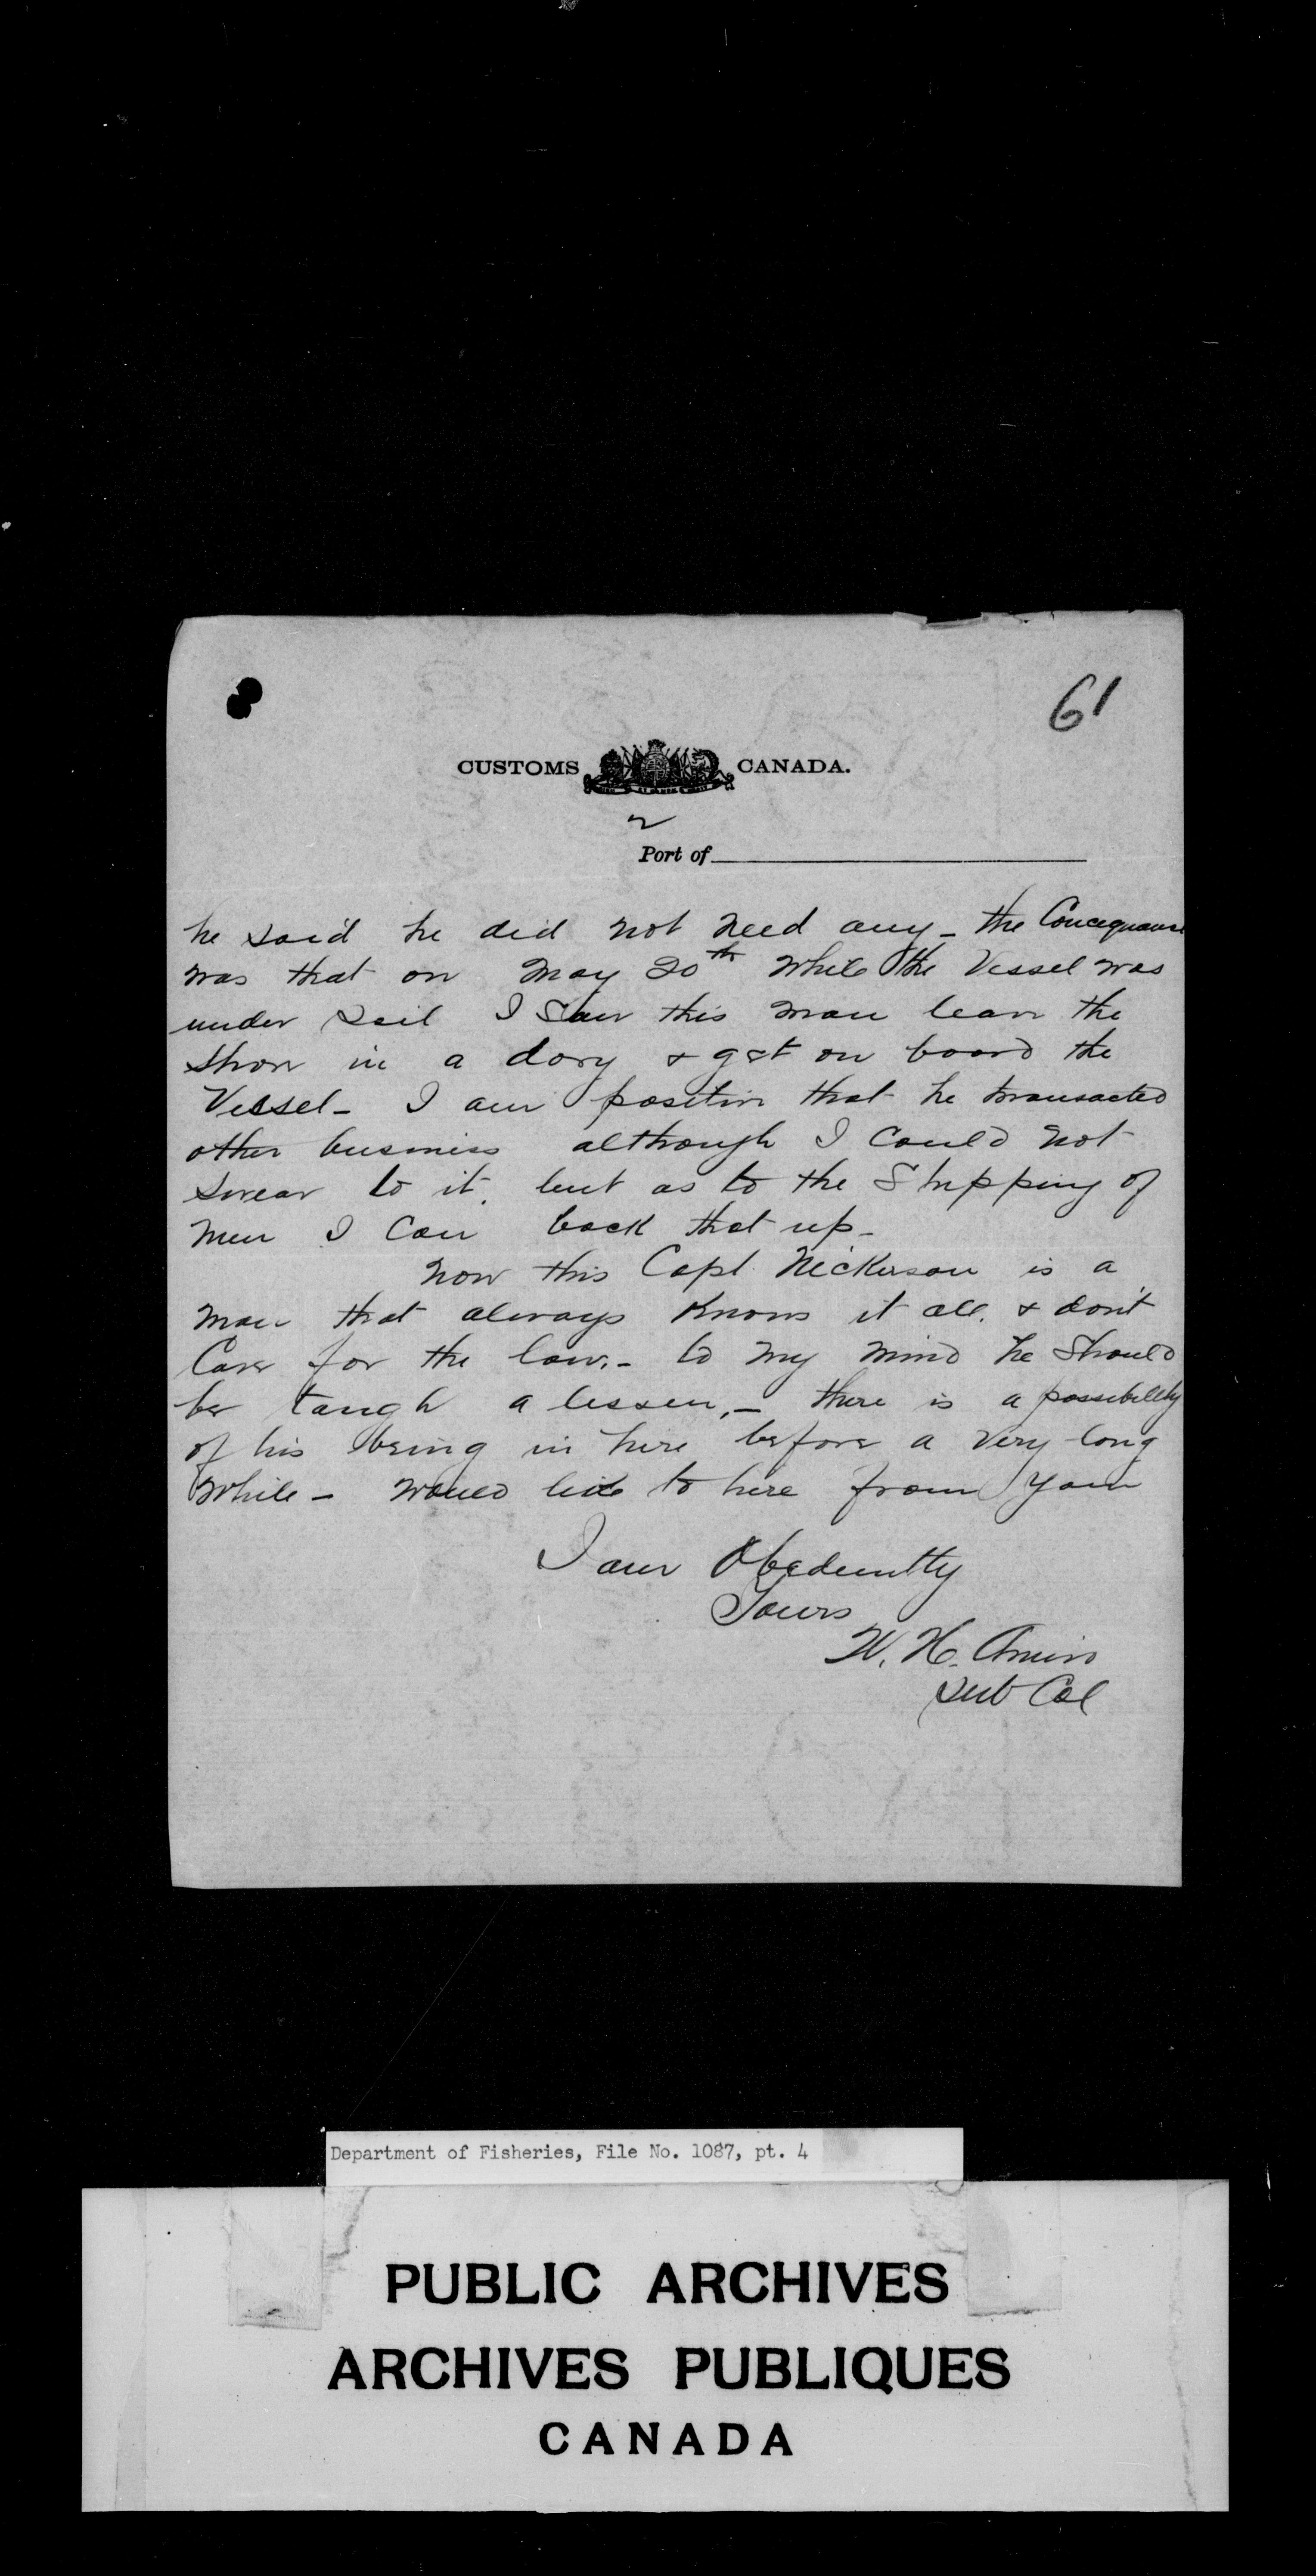 61
CUSTOMS CANADA.
2
Port of
he said he did not need any - the Concequance
was that on May 20th while the Vessel was
under sail I Saw this man leave the
shore in a dory & get on board the
Vessel - I am positive that he transacted
other business although I Could not
swear to it, but as to the Shipping of
men I Can back that up -
Now this Capt Nickerson is a
man that always Knows it all. & don't
Care for the law. - to my mind he Should
be taugh a lessen, - there is a possibility
of his being in here before a very long
while - would like to here from you
I am Obediently
Yours
W. H. Amiro
Sub Col
Department of Fisheries, File No. 1087, pt. 4
PUBLIC ARCHIVES
ARCHIVES PUBLIQUES
CANADA